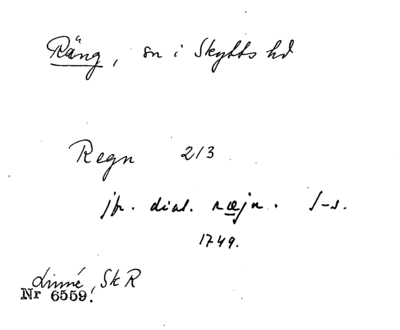 Räng, sn i Skytts hd
Regn 213
jfr. dial. ræjn. S-s.
1749.
Linné, Sk R
Nr 6559.